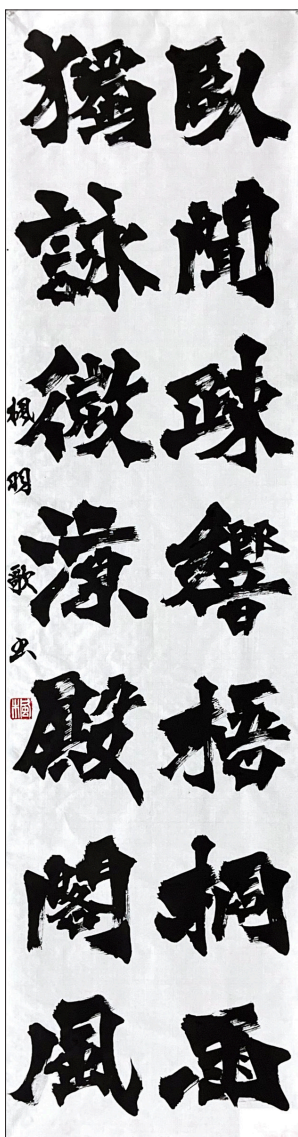 臥聞疎響梧桐雨
獨詠微涼殿閣風
楓明歌书